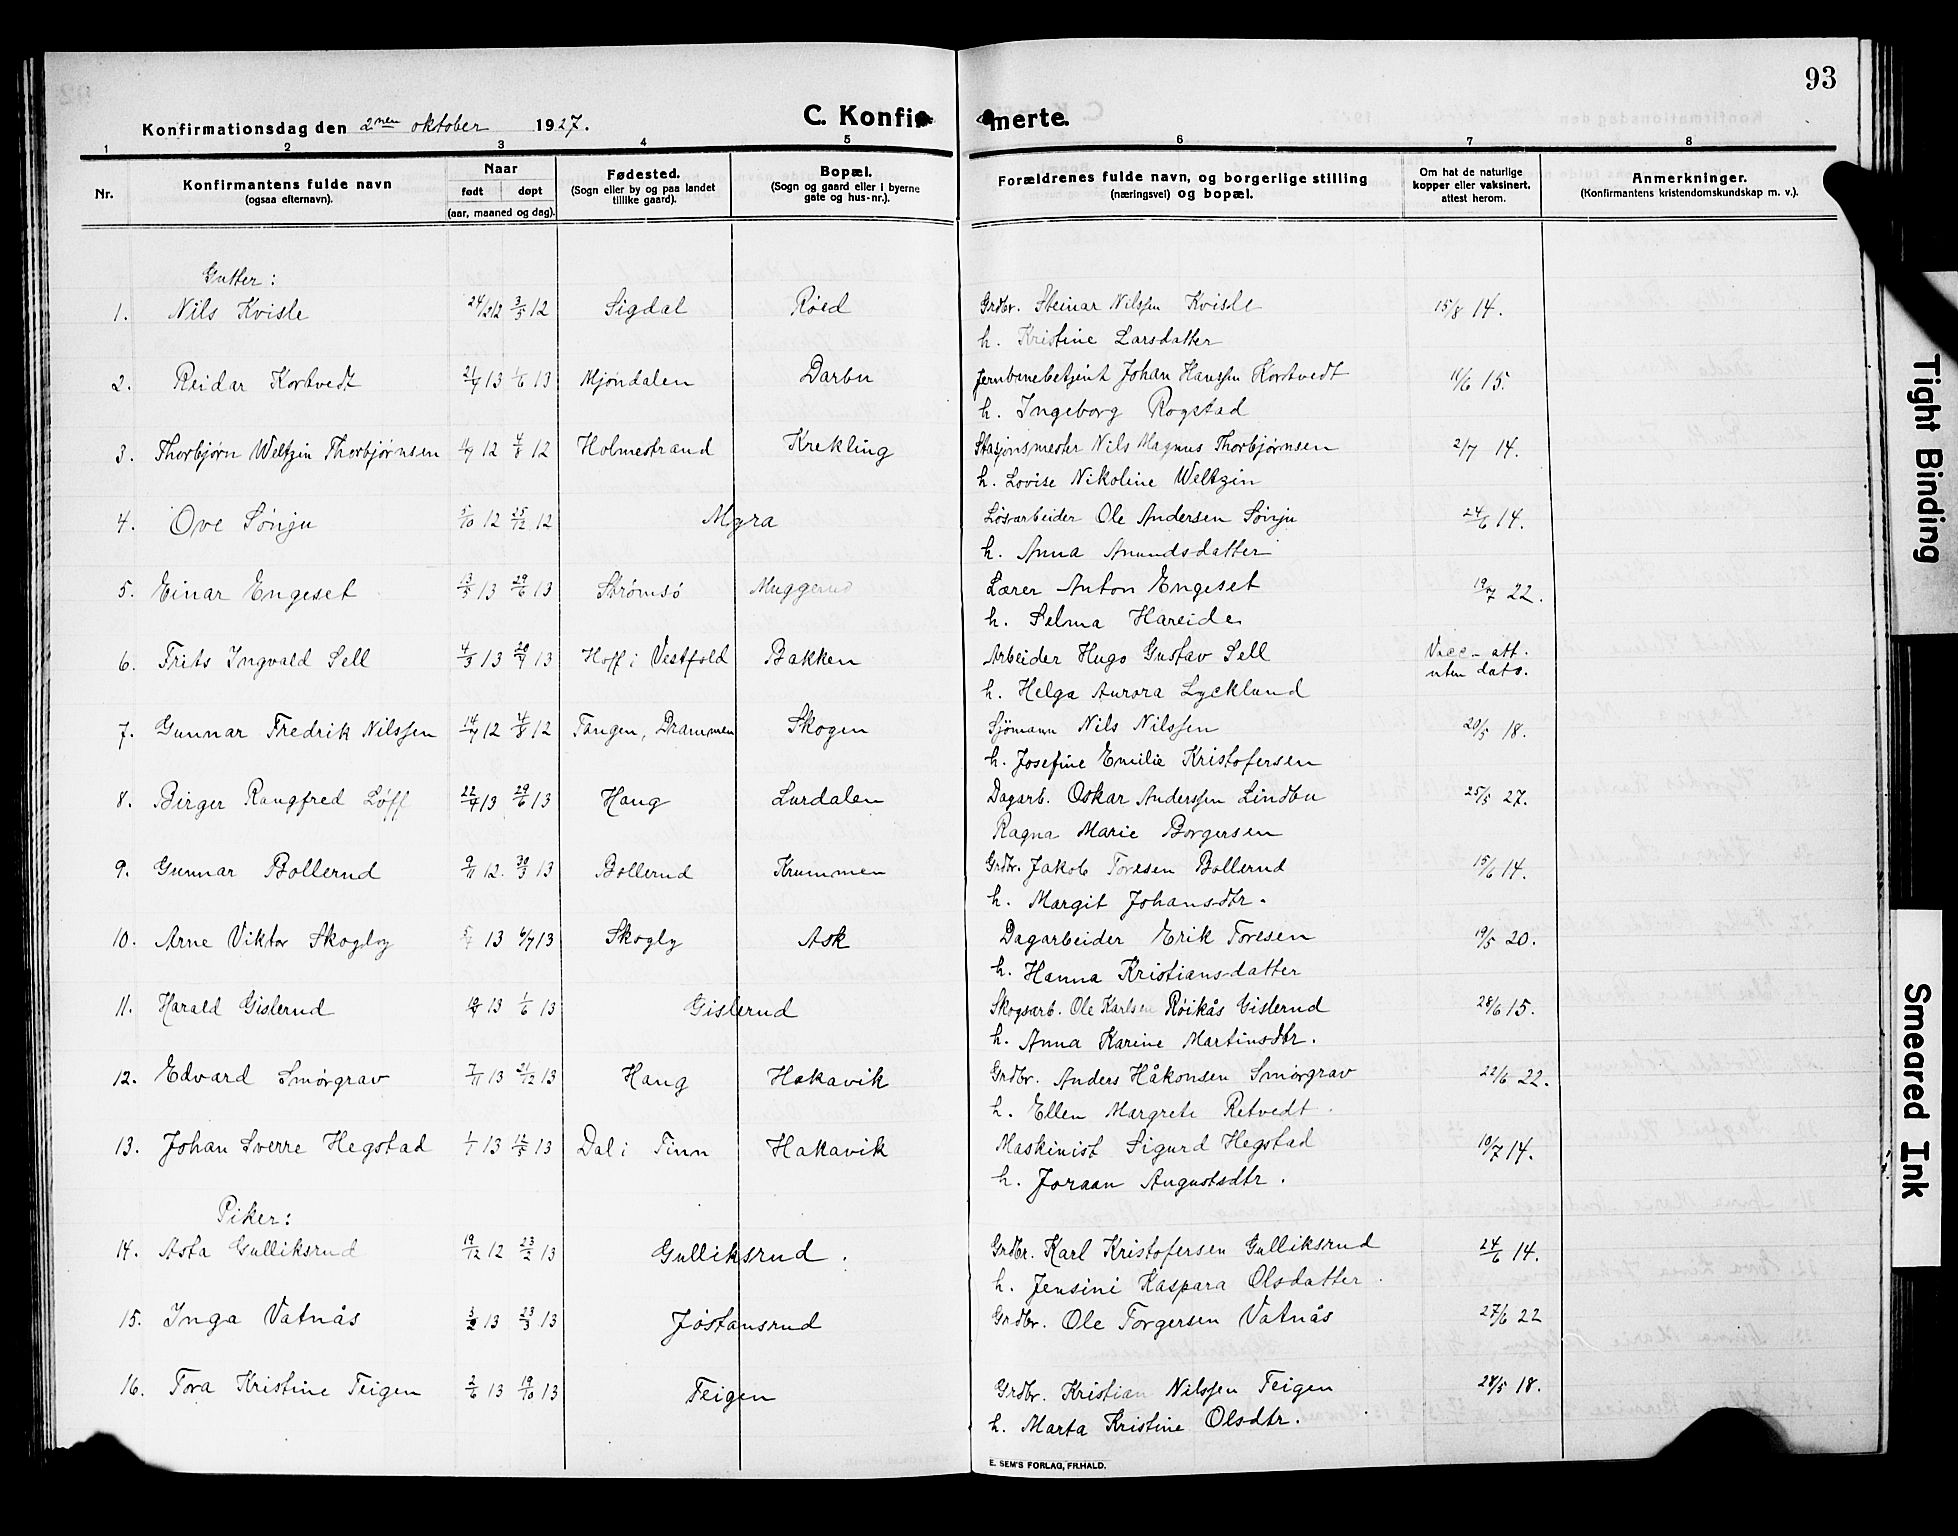 93
Konfirmationsdag den 2nen oktober 1927.
C. Konfir merte.
1 2 3 4 5 6 7 8
Nr. Konfirmantens fulde navn (ogsaa efternavn). Naar født døpt (aar, maaned og dag). Fødested. (Sogn eller by og paa landet tillike gaard). Bopæl. (Sogn og gaard eller i byerne gate og hus-nr.). Forældrenes fulde navn, og borgerlige stilling (næringsvei) og bopæl. Om hat de naturlige kopper eller vaksinert. attest herom. Anmerkninger. (Konfirmantens kristendomskundskap m. v.).
Gutter:
1. Nils Kvisle 3/5 12 Sigdal Røed Grdbr. Steinar Nilssen Kvisle 15/8 14.
h. Kristine Larsdatter
2. Reidar Kortvedt 21/4 13 1/6 13 Mjøndalen Darbu Jernbanebetjent Johan Hanssen Kortvedt 11/6 15.
h. Ingeborg Rogstad
3. Thorbjørn Weltzin Thorbjørnsen 12 4/8 12 Holmestrand Krekling Stasjonsmester Nils Magnus Thorbjørnsen 2/7 14.
h. Lovise Nikoline Weltzin
4. Ove Sønju 5/10 12 25/12 12 Myra Løsarbeider Ole Andersen Sønju 24/6 14.
h. Anna Anundsdatter
5. Einar Engeset 13/5 13 29/6 13 Strømsø Muggerud Lærer Anton Engeset 19/7 22.
h. Selma Hareide
6. Frits Ingvald Sell 4/3 13 20/4 13 Hoff i Vestfold Bakken Arbeider Hugo Gustav Sell Vacc-att.
h. Helga Aurora Lycklund uten dato.
7. Gunnar Fredrik Nilssen 14/4 12 4/8 12 Tangen, Drammen Skogen Sjømann Nils Nilssen 20/5 18.
h. Josefine Emilie Kristofersen
8. Birger Rangfred Løff 22/4 13 29/6 13 Haug Lurdalen Dagarb. Oskar Anderssen Lindbu 25/5 27.
Ragna Marie Borgersen
9. Gunnar Bollerud 9/11 12. 30/3 13 Bollerud Krummen Grdbr. Jakob Toresen Bollerud 15/6 14.
h. Margit Johansdtr.
10. Arne Viktor Skogly 13 6/7 13 Skogly Ask Dagarbeider Erik Toresen 19/5 20.
h. Hanna Kristiansdatter
11. Harald Gislerud 13 1/6 13 Gislerud Skogsarb. Ole Karlsen Røikås Gislerud 28/6 15.
h. Anna Karine Martinsdtr.
12. Edvard Smørgrav 7/11 13 21/12 13 Haug Hakavik Grdbr. Anders Håkonsen Smørgrav 22/6 22.
h. Ellen Margrete Retvedt.
13. Johan Sverre Hegstad 1/1 13 13 Dal i Tinn Hakavik Maskinist Sigurd Hegstad 10/7 14.
h. Joraan Augustsdtr.
Piker:
14. Asta Gulliksrud 19/12 12 23/2 13 Gulliksrud. Grdbr. Karl Kristofersen Gulliksrud 24/6 14.
h. Jensini Kaspara Olsdatter.
15. Inga Vatnås 3/2 13 23/3 13 Jøstansrud Grdbr. Ole Torgersen Vatnås 27/6 22
16. Tora Kristine Teigen 2/6 13 19/10 13 Teigen Grdbr. Kristian Nilssen Teigen 28/5 18.
h. Marta Kristine Olsdtr.
E. SEM'S FORLAG, FR.HALD.
Tight Binding
Smeared Ink